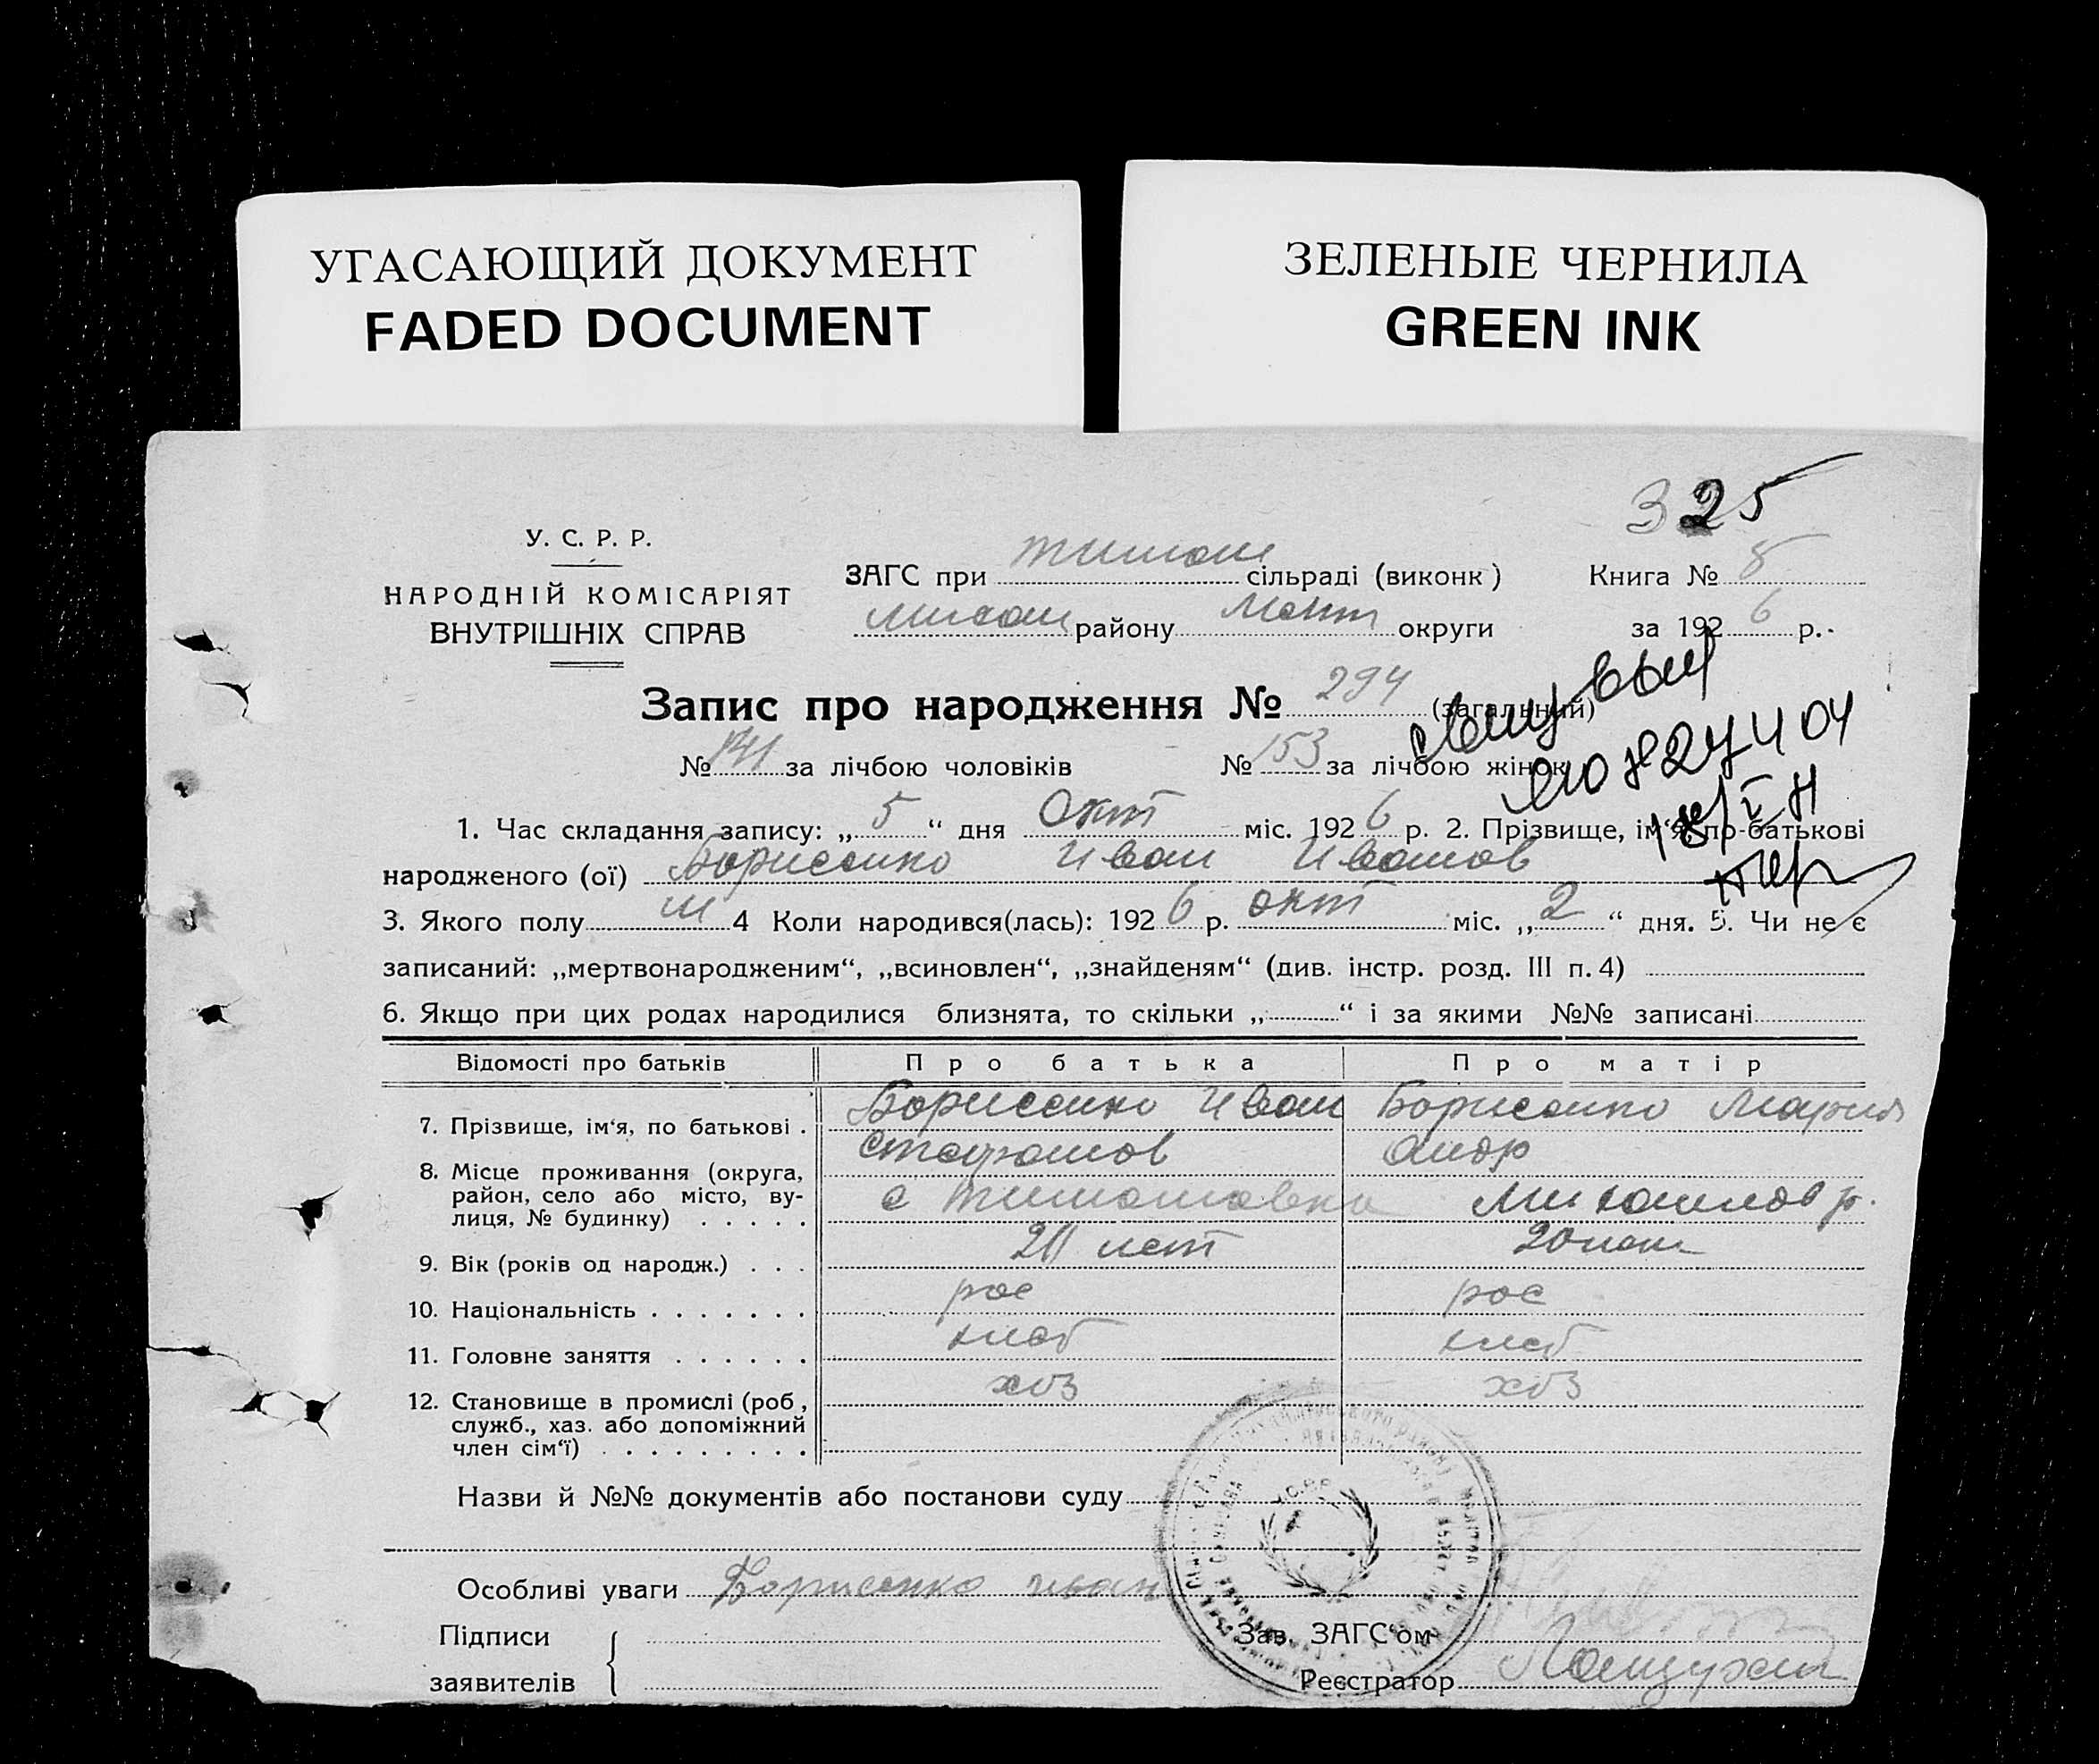 УГАСАЮЩИЙ ДОКУМЕНТ
FADED DOCUMENT
ЗЕЛЕНЫЕ ЧЕРНИЛА
GREEN INK
325
У. С. Р. Р.
НАРОДНІЙ КОМІСАРІЯТ
ВНУТРІШНІХ СПРАВ
ЗАГС при Тимош сільраді (виконк)
Михай району Меліт округи
Книга №
за 1926 р.
Запис про народження № 294 (загальний)
№ 141 за лічбою чоловіків № 153 за лічбою жінок
1. Час складання запису: „5“ дня Окт міс. 1926 р. 2. Прізвище, ім'я, по-батькові
народженого (ої) Борисенко Иван Иванов
3. Якого полу м 4 Коли народився(лась): 1926 р. окт міс. „2“ дня. 5. Чи не є
записаний: „мертвонародженим“, „всиновлен“, „знайденям“ (див. інстр. розд. III п. 4)
6. Якщо при цих родах народилися близнята, то скільки „ “ і за якими №№ записані
Відомості про батьків Про батька Про матір
7. Прізвище, ім'я, по батькові . Борисенко Иван Борисенко Мария
Стефанов Андр
8. Місце проживання (округа,
район, село або місто, ву-
лиця, № будинку) . . . . . с Тимошовка Михайлов р.
9. Вік (років од народж.) . . . лет 20 лет
10. Національність . . . . . . . рос рос
11. Головне заняття . . . . . . хлеб хлеб
12. Становище в промислі (роб, хоз хоз
служб., хаз. або допоміжний
член сім'ї) . . . . . . . . .
Назви й №№ документів або постанови суду
Особливі уваги Борисенко иван
Підписи
заявителів
Зав. ЗАГС'ом
Реєстратор